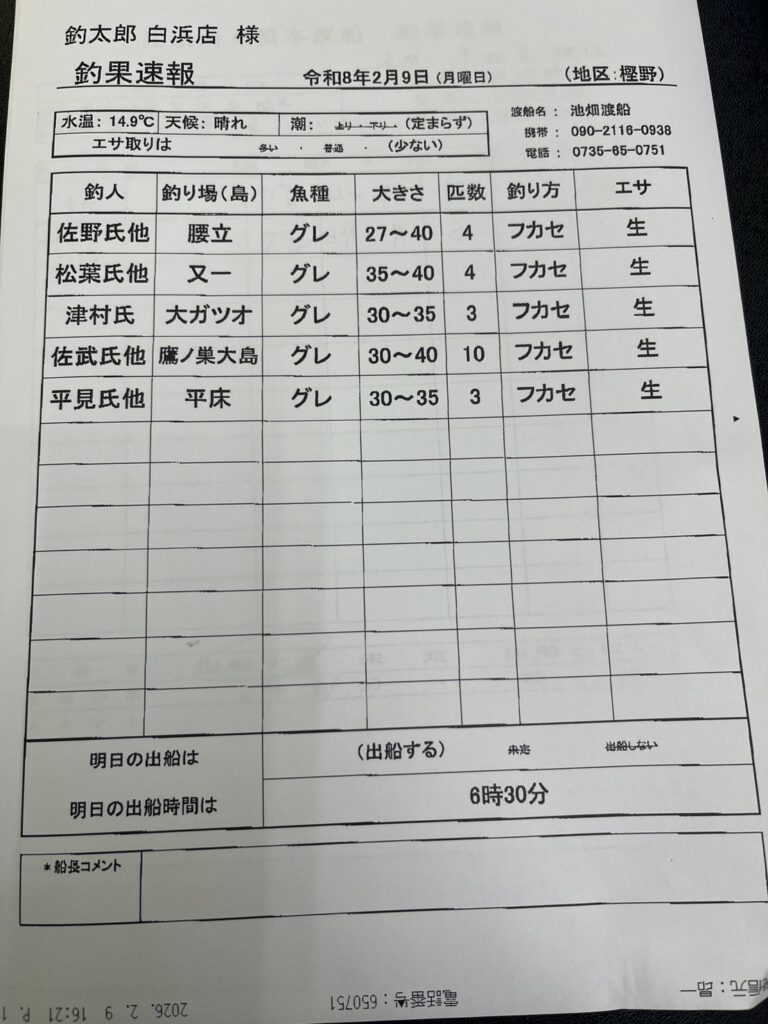 釣太郎 白浜店 様
釣果速報 令和8年2月9日(月曜日) (地区:樫野)
水温: 14.9℃ 天候: 晴れ 潮: 上り・下り・(定まらず)
エサ取りは 多い ・ 普通 ・ (少ない)
渡船名: 池畑渡船
携帯: 090-2116-0938
電話: 0735-65-0751
釣人 釣り場(島) 魚種 大きさ 匹数 釣り方 エサ
佐野氏他 腰立 グレ 27~40 4 フカセ 生
松葉氏他 又一 グレ 35~40 4 フカセ 生
津村氏 大ガツオ グレ 30~35 3 フカセ 生
佐武氏他 鷹ノ巣大島 グレ 30~40 10 フカセ 生
平見氏他 平床 グレ 30~35 3 フカセ 生
明日の出船は (出船する) 未定 出船しない
明日の出船時間は 6時30分
*船長コメント
発信元:昂一 電話番号:650751 2026. 2. 9 16:21 P. 1